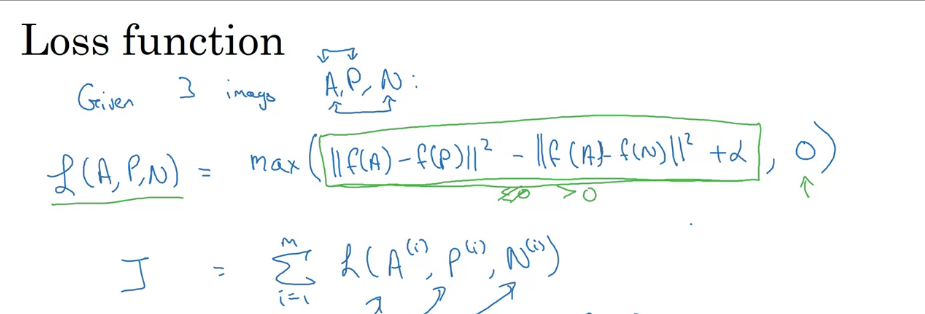 Loss function
Given 3 images A, P, N:
L(A, P, N) = max(||f(A) - f(P)||² - ||f(A) - f(N)||² + α, 0)
≤0 >0
J = Σ_{i=1}^{M} L(A^(i), P^(i), N^(i))